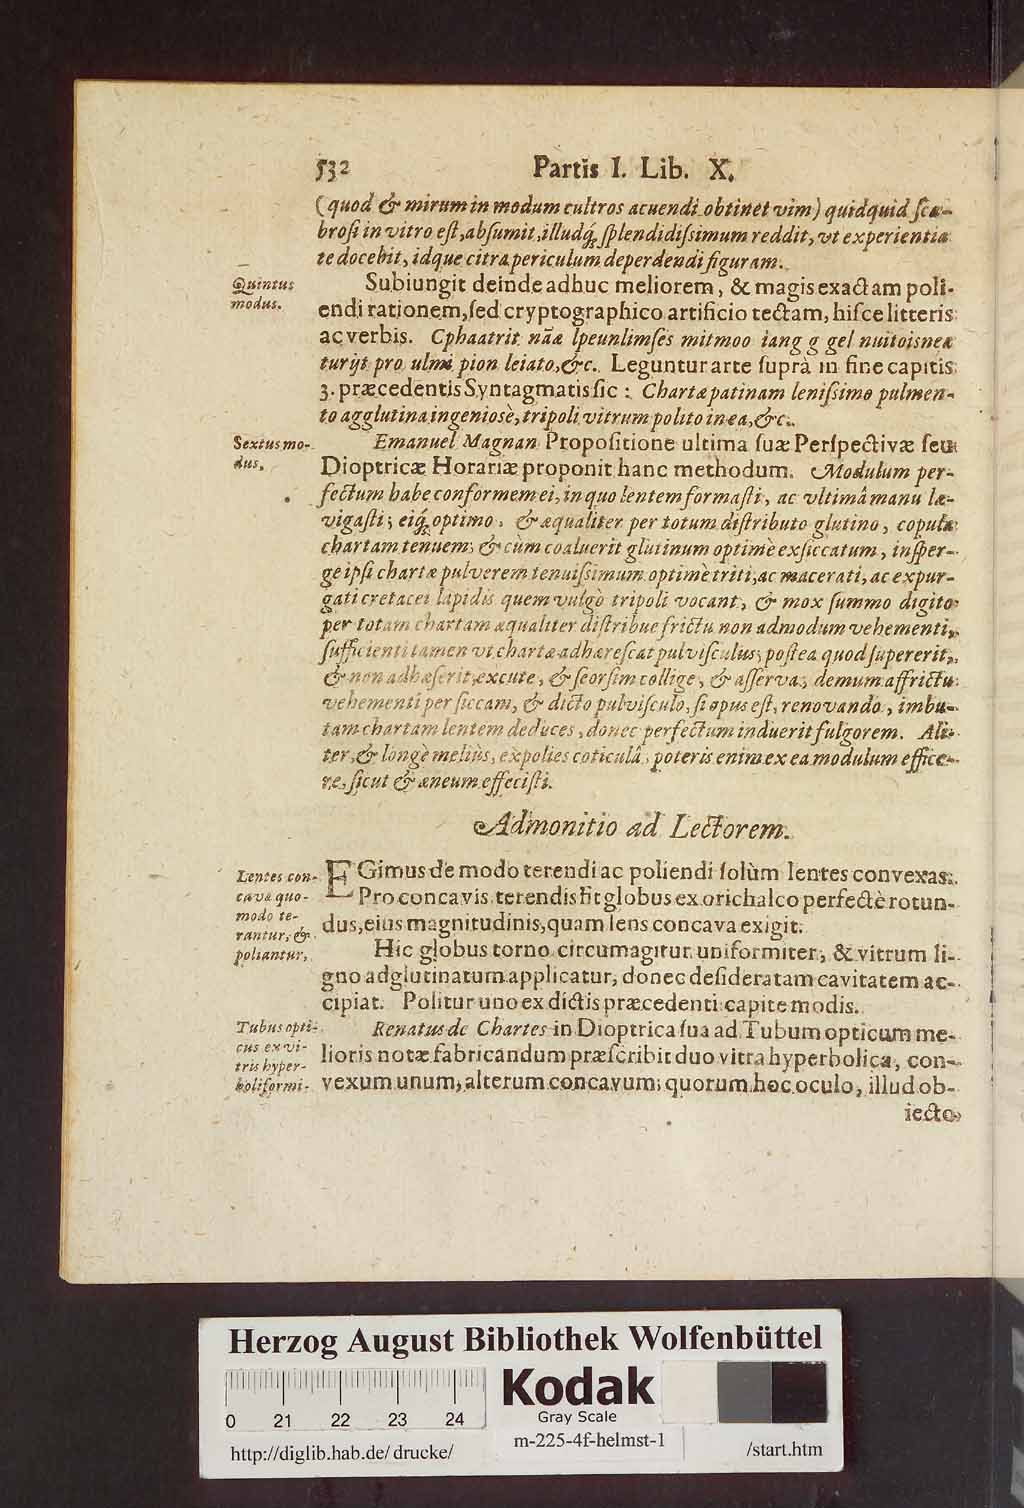 532 Partis I. Lib. X.
(quod & mirum in modum cultros acuendi obtinet vim) quidquid ſcæ-
broſi in vitro eſt, abſumit, illudq́; ſplendidiſsimum reddit, vt experientia
te docebit, idque citra periculum deperdendi figuram.
Quintus
modus.
Subiungit deinde adhuc meliorem, & magis exactam poli-
endi rationem, ſed cryptographico artificio tectam, hiſce litteris
ac verbis. Cphaatrit nãæ lpeunlimſes mitmoo iang g gel nuitoisneæ
turijt pro ulmi pion leiato, &c. Leguntur arte ſuprà in fine capitis
3. præcedentis Syntagmatis ſic: Chartæ patinam leniſsimo pulmen-
to agglutina ingeniosè, tripoli vitrum polito in ea, &c.
Sextus mo-
dus.
Emanuel Magnan Propoſitione ultima ſuæ Perſpectivæ ſeu
Dioptricæ Horariæ proponit hanc methodum. Modulum per-
fectum habe conformem ei, in quo lentem formaſti, ac vltimâ manu læ-
vigaſti; eiq́; optimo, & æqualiter per totum diſtributo glutino, copula
chartam tenuem; & cùm coaluerit glutinum optimè exſiccatum, inſper-
ge ipſi chartæ pulverem tenuiſsimum optimè triti, ac macerati, ac expur-
gati cretacei lapidis quem vulgò tripoli vocant, & mox ſummo digito
per totam chartam æqualiter diſtribue frictu non admodum vehementi,
ſufficienti tamen vt chartæ adhæreſcat pulviſculus; poſtea quod ſupererit,
& non adhæſerit, excute, & ſeorſim collige, & aſſerva; demum affrictu
vehementi per ſiccam, & dicto pulviſculo, ſi opus eſt, renovando, imbu-
tam chartam lentem deduces, donec perfectum induerit fulgorem. Ali-
ter, & longè meliùs, expolies coticulâ, poteris enim ex ea modulum effice-
re, ſicut & æneum effeciſti.
Admonitio ad Lectorem.
Lentes con-
cavæ quo-
modo te-
rantur, &
poliantur,
EGimus de modo terendi ac poliendi ſolùm lentes convexas.
Pro concavis terendis fit globus ex orichalco perfectè rotun-
dus, eius magnitudinis, quam lens concava exigit.
Hic globus torno circumagitur uniformiter, & vitrum li-
gno adglutinatum applicatur, donec deſideratam cavitatem ac-
cipiat. Politur uno ex dictis præcedenti capite modis.
Tubus opti-
cus ex vi-
tris hyper-
boliformi-
Renatus de Chartes in Dioptrica ſua ad Tubum opticum me-
lioris notæ fabricandum præſcribit duo vitra hyperbolica, con-
vexum unum, alterum concavum; quorum hoc oculo, illud ob-
iecto
Herzog August Bibliothek Wolfenbüttel
0 21 22 23 24
Kodak
Gray Scale
http://diglib.hab.de/drucke/ m-225-4f-helmst-1 /start.htm